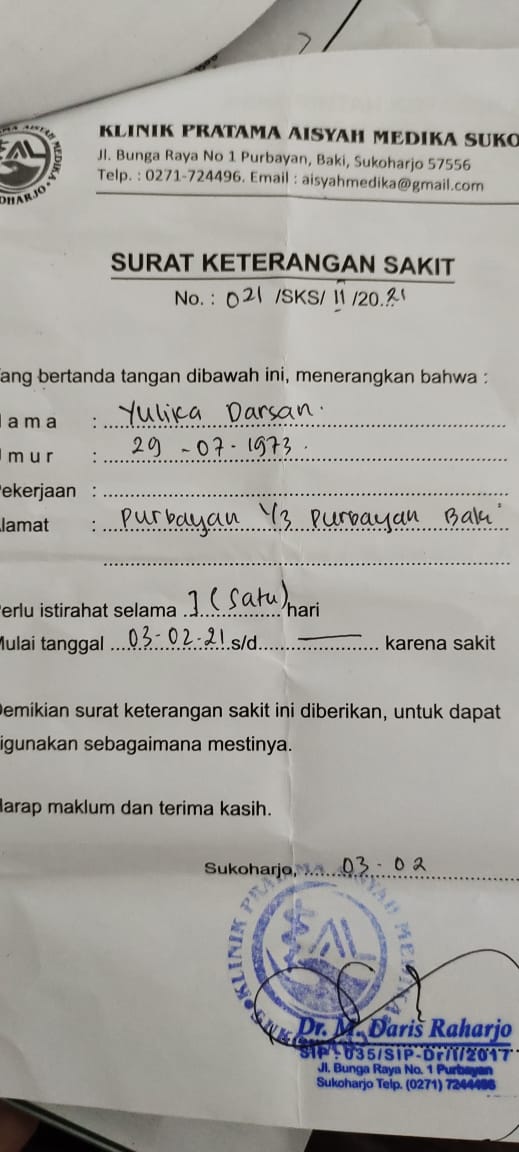 KLINIK PRATAMA AISYAH MEDIKA SUKO
Jl. Bunga Raya No 1 Purbayan, Baki, Sukoharjo 57556
Telp. : 0271-724496. Email : aisyahmedika@gmail.com
SURAT KETERANGAN SAKIT
No. : 021 /SKS/ II /20.21
ang bertanda tangan dibawah ini, menerangkan bahwa :
ama : Yulika Darsan.
mur : 29 - 07 - 1973.
ekerjaan :
lamat : Purbayan 1/3 Purbayan Baki
erlu istirahat selama 1 (Satu) hari
Mulai tanggal 03-02-21 s/d — karena sakit
Demikian surat keterangan sakit ini diberikan, untuk dapat
igunakan sebagaimana mestinya.
Harap maklum dan terima kasih.
Sukoharjo, 03 - 02
Dr. M. Daris Raharjo
SIP : 035/SIP-Dr/I/2017
Jl. Bunga Raya No. 1 Purbayan
Sukoharjo Telp. (0271) 7244496